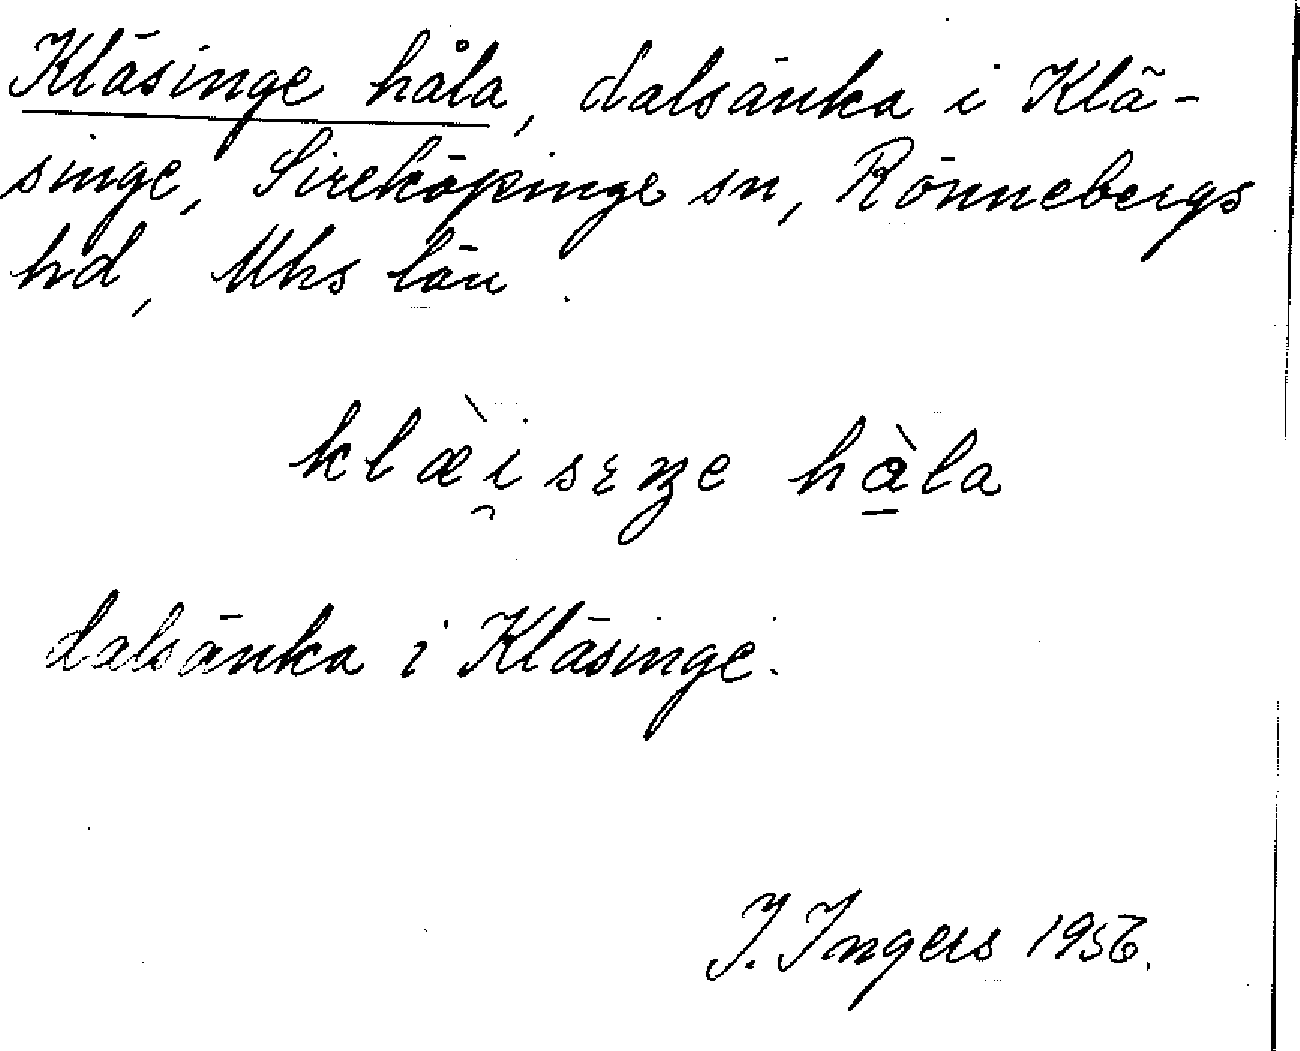 Kläsinge håla, dalsänka i Klä-
singe, Sireköpinge sn, Rönnebergs
hd, Mhs län.
klæ̀i̯sɛŋe hὰ̠la
dalsänka i Kläsinge.
I. Ingers 1956.